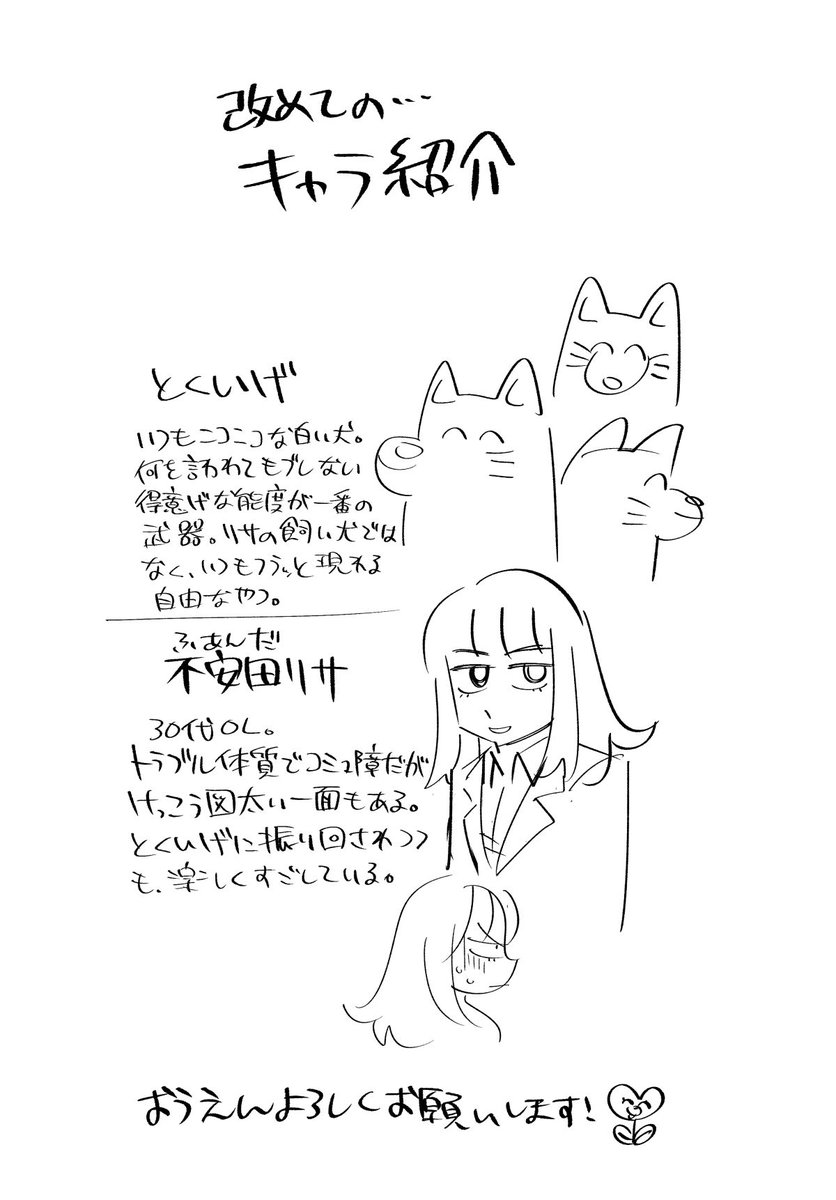 改めての…
キャラ紹介
とくいげ
いつもニコニコな白い犬。
何を言われてもブレない
得意げな態度が一番の
武器。リサの飼い犬では
なく、いつもフラッと現れる
自由なやつ。
ふあんだ
不安田リサ
30代OL。
トラブル体質でコミュ障だが
けっこう図太い一面もある。
とくいげに振り回されつつ
も、楽しくすごしている。
おうえんよろしくお願いします!